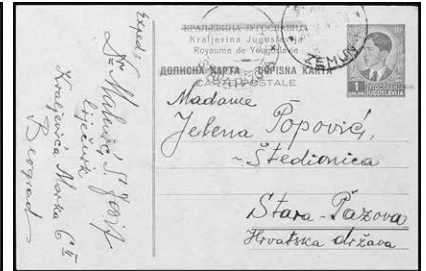 Exped:
Dr Maletić S. Josif
liječnik
Kraljevića Marka 6 II
Beograd
КРАЉЕВИНА ЈУГОСЛАВИЈА
Kraljevina Jugoslavija
Royaume de Yougoslavie
ДОПИСНА КАРТА – DOPISNA KARTA
CARTE POSTALE
ZEMUN
1
ЈУГОСЛАВИЈА
JUGOSLAVIJA
Madame
Jelena Popović,
- Štedionica
Stara-Pazova
Hrvatska država